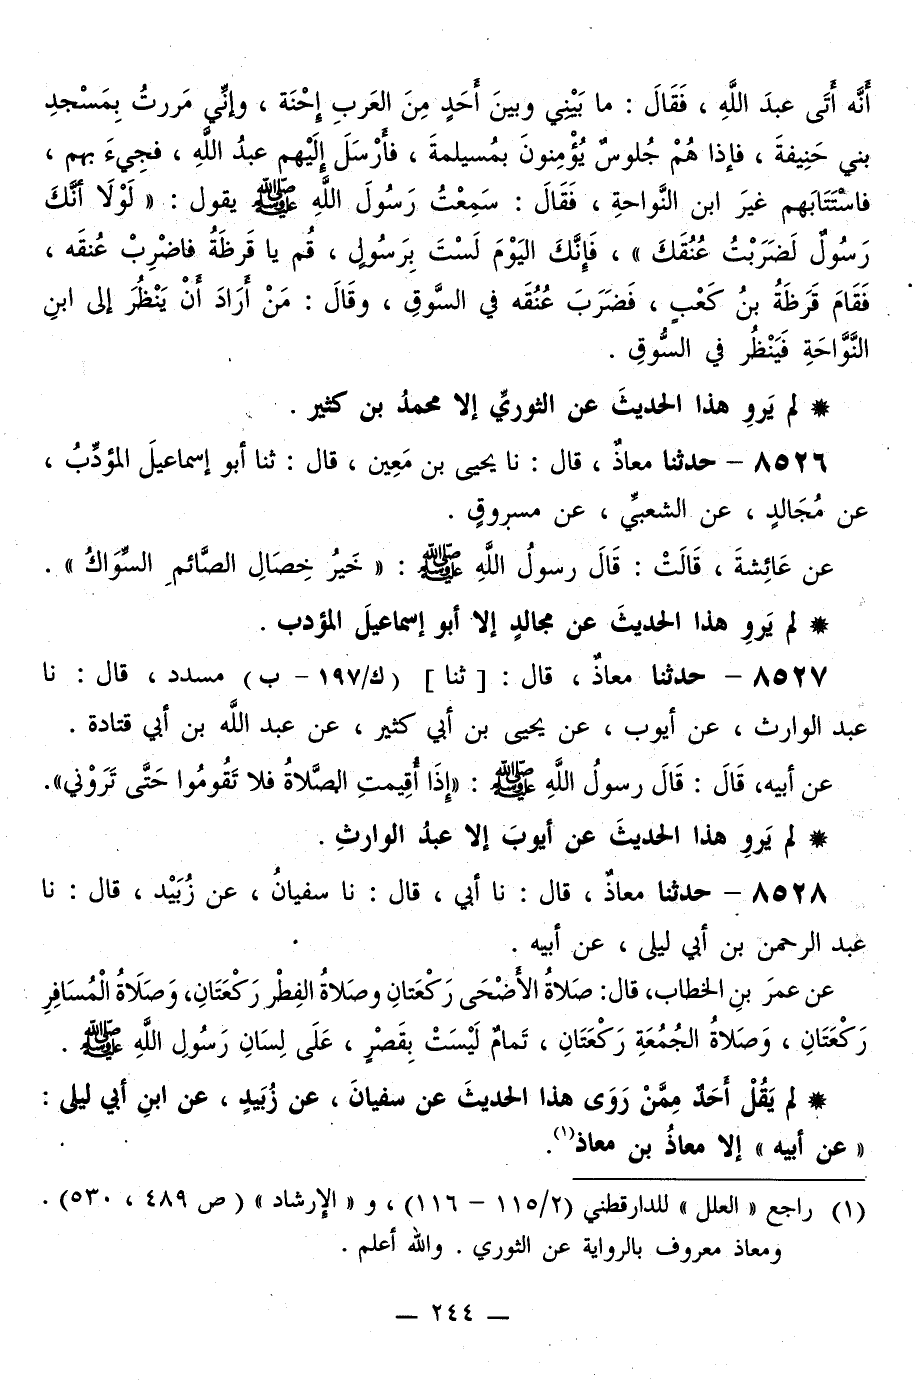 أَنَّه أَتَى عبدَ اللَّهِ ، فَقَالَ : ما بَيْنِي وبينَ أَحَدٍ مِنَ العَربِ إِحْنَة ، وإنِّي مَررتُ بِمَسْجدِ
بني حَنِيفةَ ، فإذا هُمْ جُلوسٌ يُؤْمِنونَ بمُسيلمةَ ، فأَرْسَلَ إِلَيْهم عبدُ اللَّهِ ، فجِيءَ بهم ،
فاسْتَتَابَهم غيرَ ابن النَّواحةِ ، فَقَالَ : سَمِعْتُ رَسُولَ اللَّهِ ﷺ يقول : « لَوْلَا أنَّكَ
رَسُولٌ لَضَرَبْتُ عُنُقَكَ » ، فَإِنَّكَ اليَوْمَ لَسْتَ بِرَسُولٍ ، قُم يا قَرظَةُ فاضْرِبْ عُنقَه ،
فَقَامَ قَرَظَةُ بنُ كَعْبٍ ، فَضَرَبَ عُنُقَه في السَّوقِ ، وقَالَ : مَنْ أَرَادَ أَنْ يَنْظُرَ إلى ابنِ
النَّوَّاحَةِ فَيَنْظُر في السُّوقِ .
* لم يَروِ هذا الحديثَ عن الثوريِّ إلا محمدُ بن كثير .
٨٥٢٦ - حدثنا معاذٌ ، قال : نا يحيى بن مَعِين ، قال : ثنا أبو إسماعيلَ المؤدِّبُ ،
عن مُجَالدٍ ، عن الشعبيِّ ، عن مسروقٍ .
عن عَائِشةَ ، قَالَتْ : قَالَ رسولُ اللَّهِ ﷺ : « خَيرُ خِصَالِ الصَّائمِ السِّوَاكُ » .
* لم يَروِ هذا الحديثَ عن مجالدٍ إلا أبو إسماعيلَ المؤدب .
٨٥٢٧ - حدثنا معاذٌ ، قال : [ ثنا ] (ك/١٩٧ - ب) مسدد ، قال : نا
عبد الوارث ، عن أيوب ، عن يحيى بن أبي كثير ، عن عبد اللَّه بن أبي قتادة .
عن أبيه، قَالَ : قَالَ رسولُ اللَّهِ ﷺ : «إِذَا أُقِيمتِ الصَّلاةُ فلا تَقُومُوا حَتَّى تَرَوْني».
* لم يَروِ هذا الحديثَ عن أيوبَ إلا عبدُ الوارثِ .
٨٥٢٨ - حدثنا معاذٌ ، قال : نا أبي ، قال : نا سفيانُ ، عن زُبَيْد ، قال : نا
عبد الرحمن بن أبي ليلى ، عن أبيه .
عن عمرَ بنِ الخطاب، قال: صَلاةُ الأَضْحَى رَكْعَتانِ وصَلاةُ الفِطْرِ رَكْعَتَانِ، وَصَلَاةُ الْمُسَافِرِ
رَكْعَتَانِ ، وَصَلاةُ الجُمُعَةِ رَكْعَتَانِ ، تَمامٌ لَيْسَتْ بِقَصْرٍ ، عَلَى لِسَانِ رَسُولِ اللَّهِ ﷺ .
* لم يَقُلْ أَحَدٌ مِمَّنْ رَوَى هذا الحديثَ عن سفيانَ ، عن زُبَيدٍ ، عن ابنِ أبي ليلى :
« عن أبيه » إلا معاذُ بن معاذ(١).
(١) راجع « العلل » للدارقطني (٢/١١٥ - ١١٦) ، و « الإرشاد » ( ص ٤٨٩ ، ٥٣٠) .
ومعاذ معروف بالرواية عن الثوري . والله أعلم .
— ٢٤٤ —